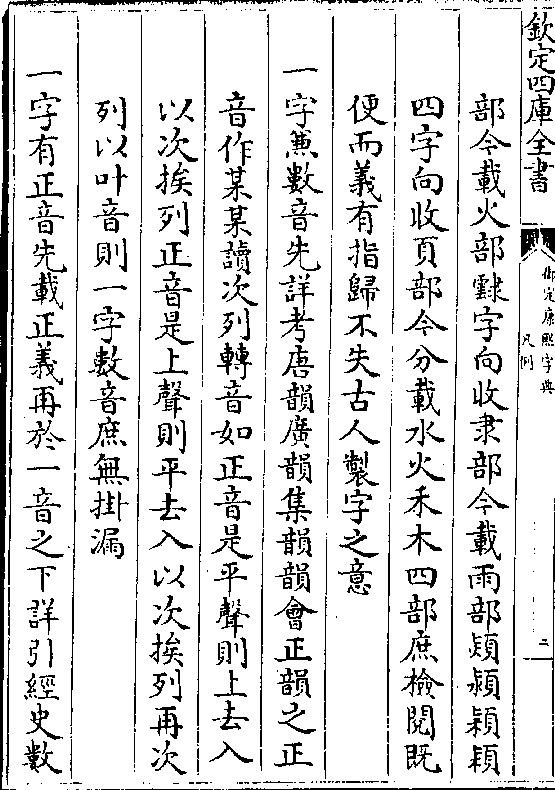 欽定四庫全書
御定康熙字典
凡例
二
部今載火部隸字向收隶部今載雨部熲潁穎䫂
四字向收頁部今分載水火禾木四部庶檢閱既
便而義有指歸不失古人製字之意
一字兼數音先詳考唐韻廣韻集韻韻會正韻之正
音作某某讀次列轉音如正音是平聲則上去入
以次挨列正音是上聲則平去入以次挨列再次
列以叶音則一字數音庶無掛漏
一字有正音先載正義再於一音之下詳引經史數